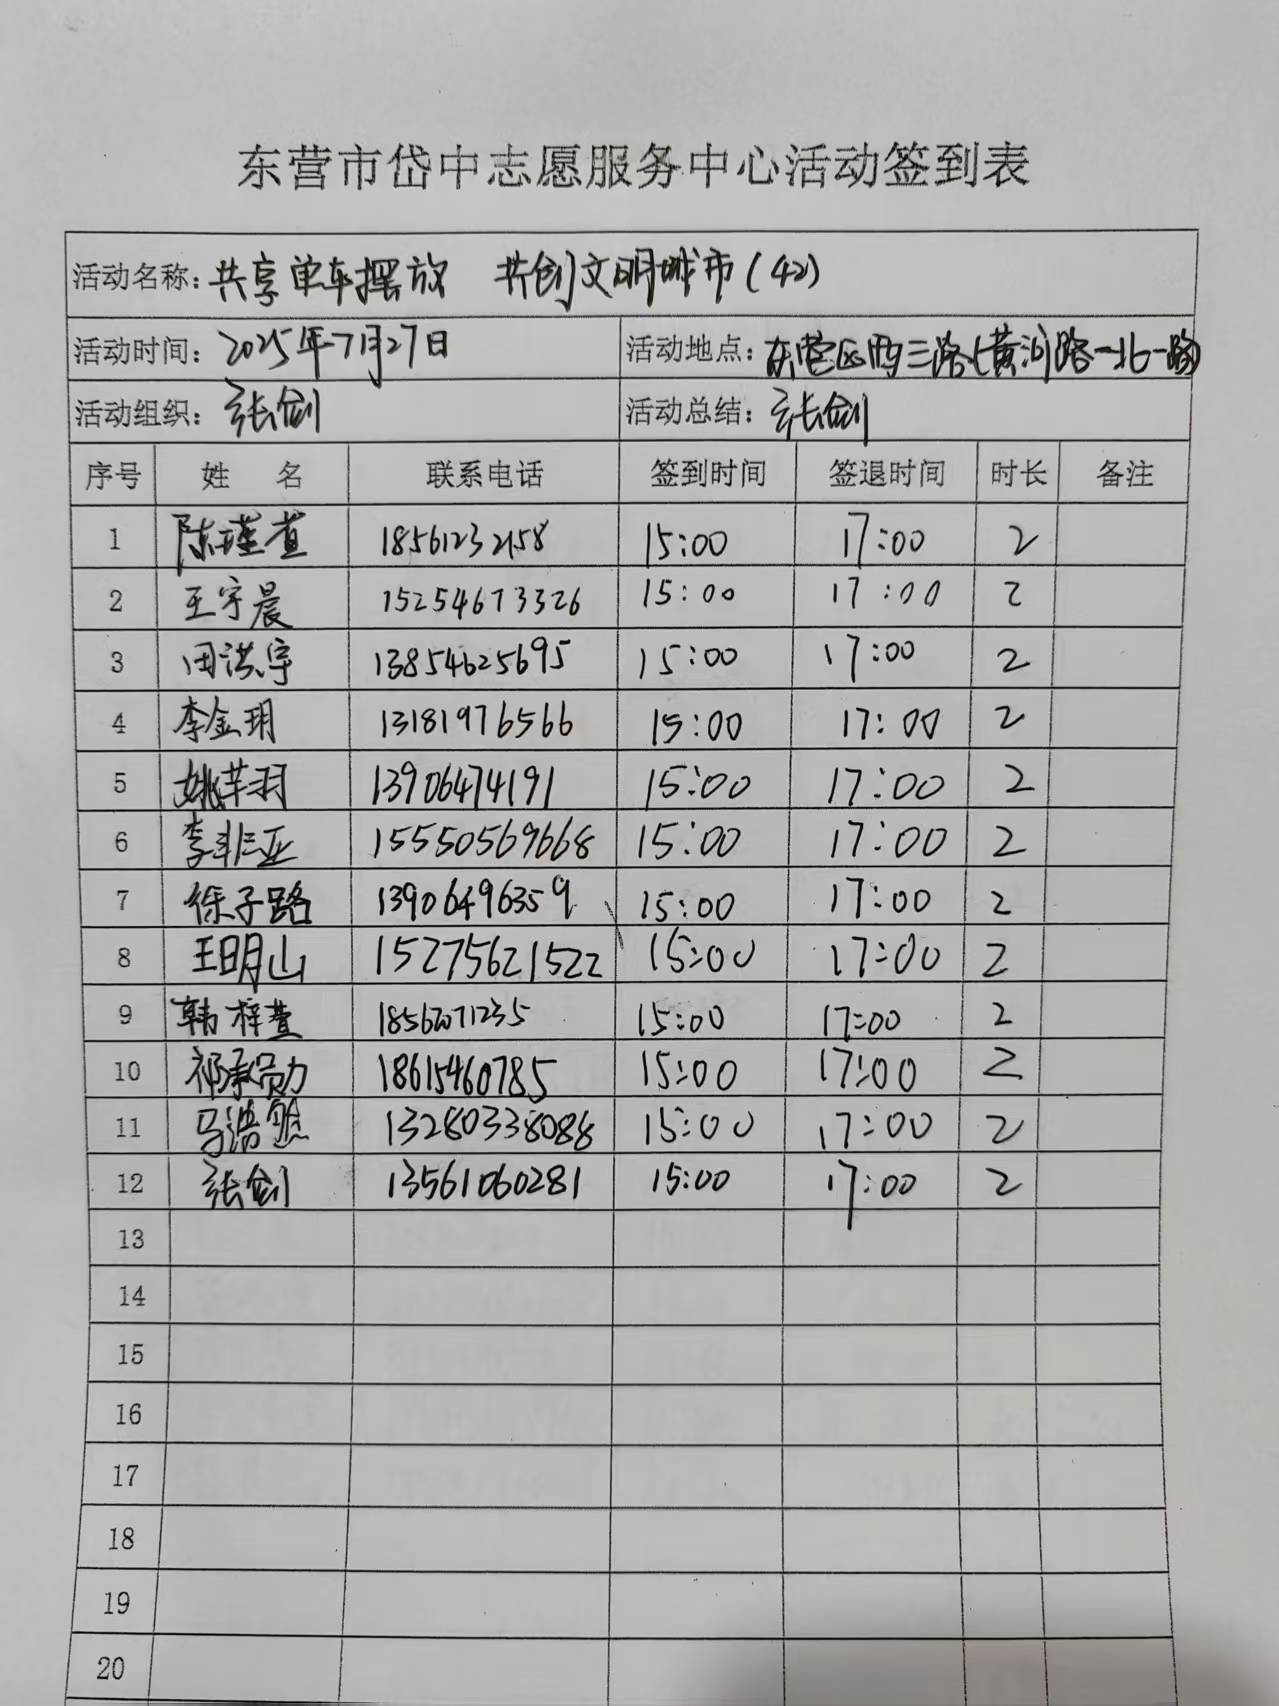 东营市岱中志愿服务中心活动签到表
活动名称：共享单车摆放 共创文明城市(42)
活动时间：2025年7月27日 活动地点：东营区西三路(黄河路-北一路)
活动组织：张剑 活动总结：张剑
序号 姓 名 联系电话 签到时间 签退时间 时长 备注
1 陈瑾萱 18561232158 15:00 17:00 2
2 王宇晨 15254673326 15:00 17:00 2
3 田洪宇 13854625695 15:00 17:00 2
4 李金玥 13181976566 15:00 17:00 2
5 姚芊羽 13906474191 15:00 17:00 2
6 李非亚 15550569668 15:00 17:00 2
7 徐子路 13906496359 15:00 17:00 2
8 王明山 15275621522 15:00 17:00 2
9 韩梓萱 15:00 17:00 2
10 祁承勋 18615460785 15:00 17:00 2
11 马浩 13280338088 15:00 17:00 2
12 张剑 13561060281 15:00 17:00 2
13
14
15
16
17
18
19
20